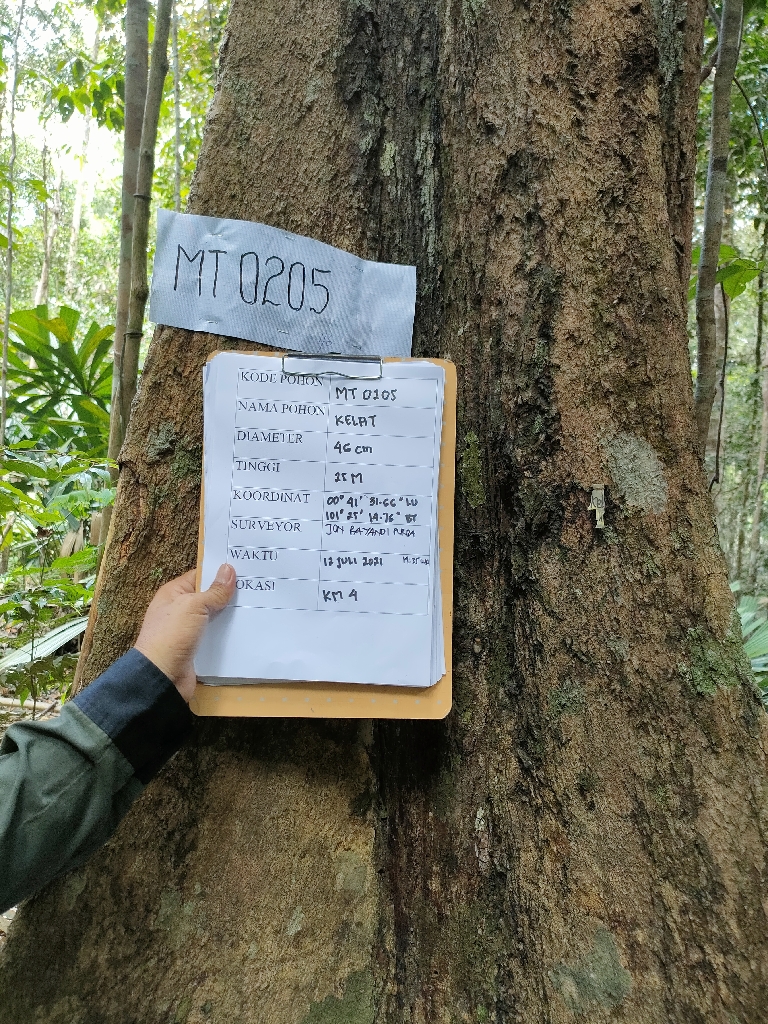 MT 0205
KODE POHON MT 0205
NAMA POHON KELAT
DIAMETER 46 cm
TINGGI 25 M
KOORDINAT 00° 41' 31.66" LU
101° 25' 14.76" BT
SURVEYOR JON RAYANDI
WAKTU 12 JULI 2021
OKASI KM 4